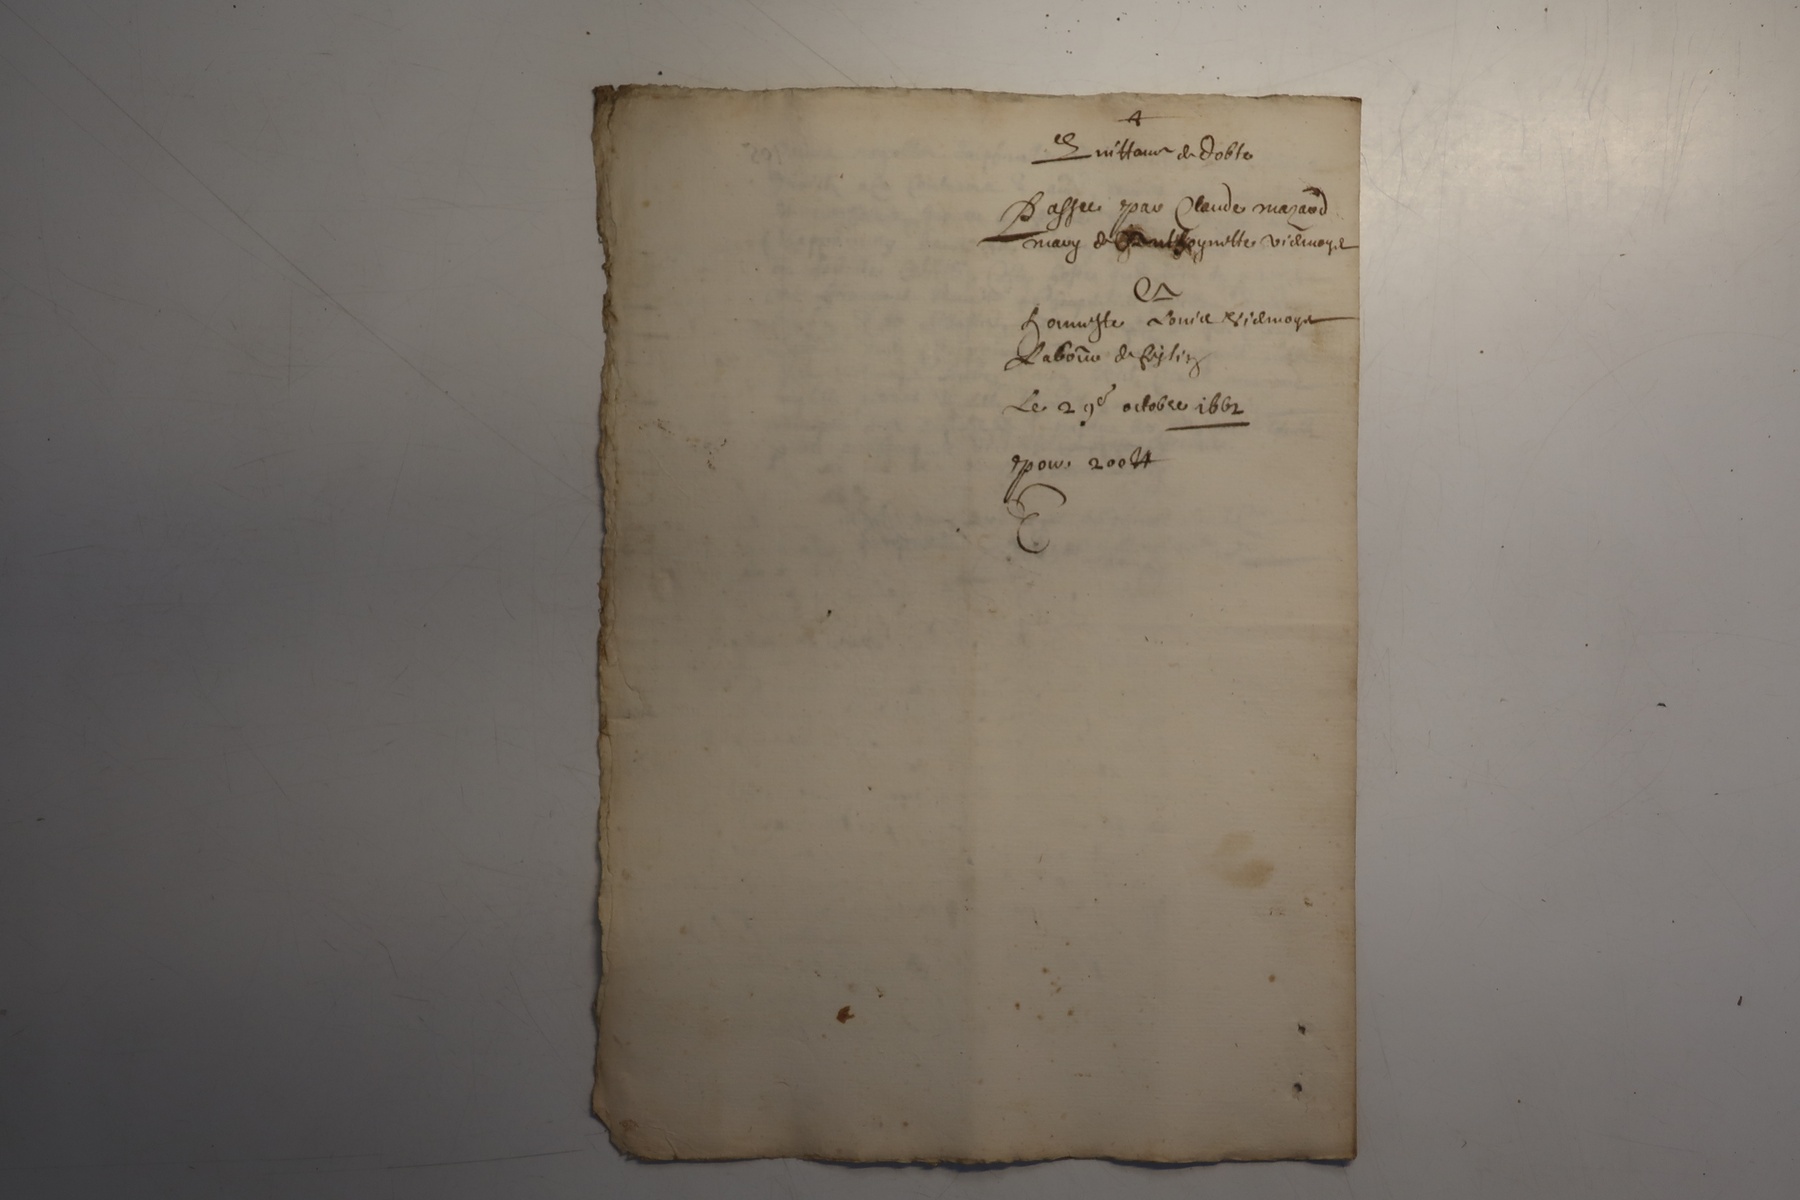 Quittance de dobte
Passee par Claude mazard
mary de Anthoynette vidmoye
Et
honneste Louis vidmoye
Laboure de
Le 29e octobre 1662
pour 200 tt